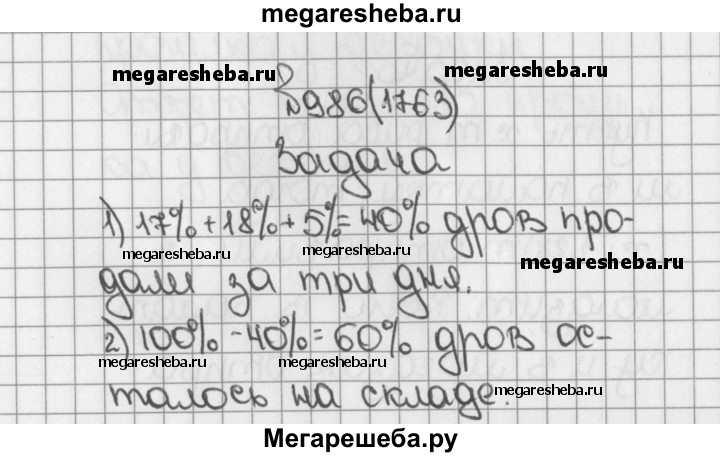 megaresheba.ru
megaresheba.ru megaresheba.ru
№986(1763)
Задача
1) 17% + 18% + 5% = 40% дров про-
megaresheba.ru megaresheba.ru megaresheba.ru
дали за три дня.
2) 100% - 40% = 60% дров ос-
megaresheba.ru megaresheba.ru
талось на складе. megaresheba.ru
Мегарешеба.ру